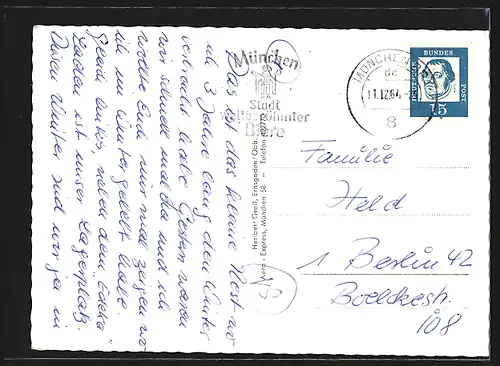 Das ist das kleine Nest wo
ich 3 Jahre lang den Winter
verbracht habe. Gestern waren
wir schnell mal da und ich
wollte Euch nur mal zeigen wo
ich im Winter gelebt habe.
Gleich links, neben dem "Edeka"
Laden ist unser Lagerplatz.
Diesen Winter sind wir in
München
Stadt
weltberühmter
Biere
Heribert Greil, Ernsgaden/Obb.
Aero-Express, München 58 - Telefon
MÜNCHEN
dc
11.12.64
8
DEUTSCHE
BUNDES
POST
15
Familie
Held
1 Berlin 42
Boelckestr.
108